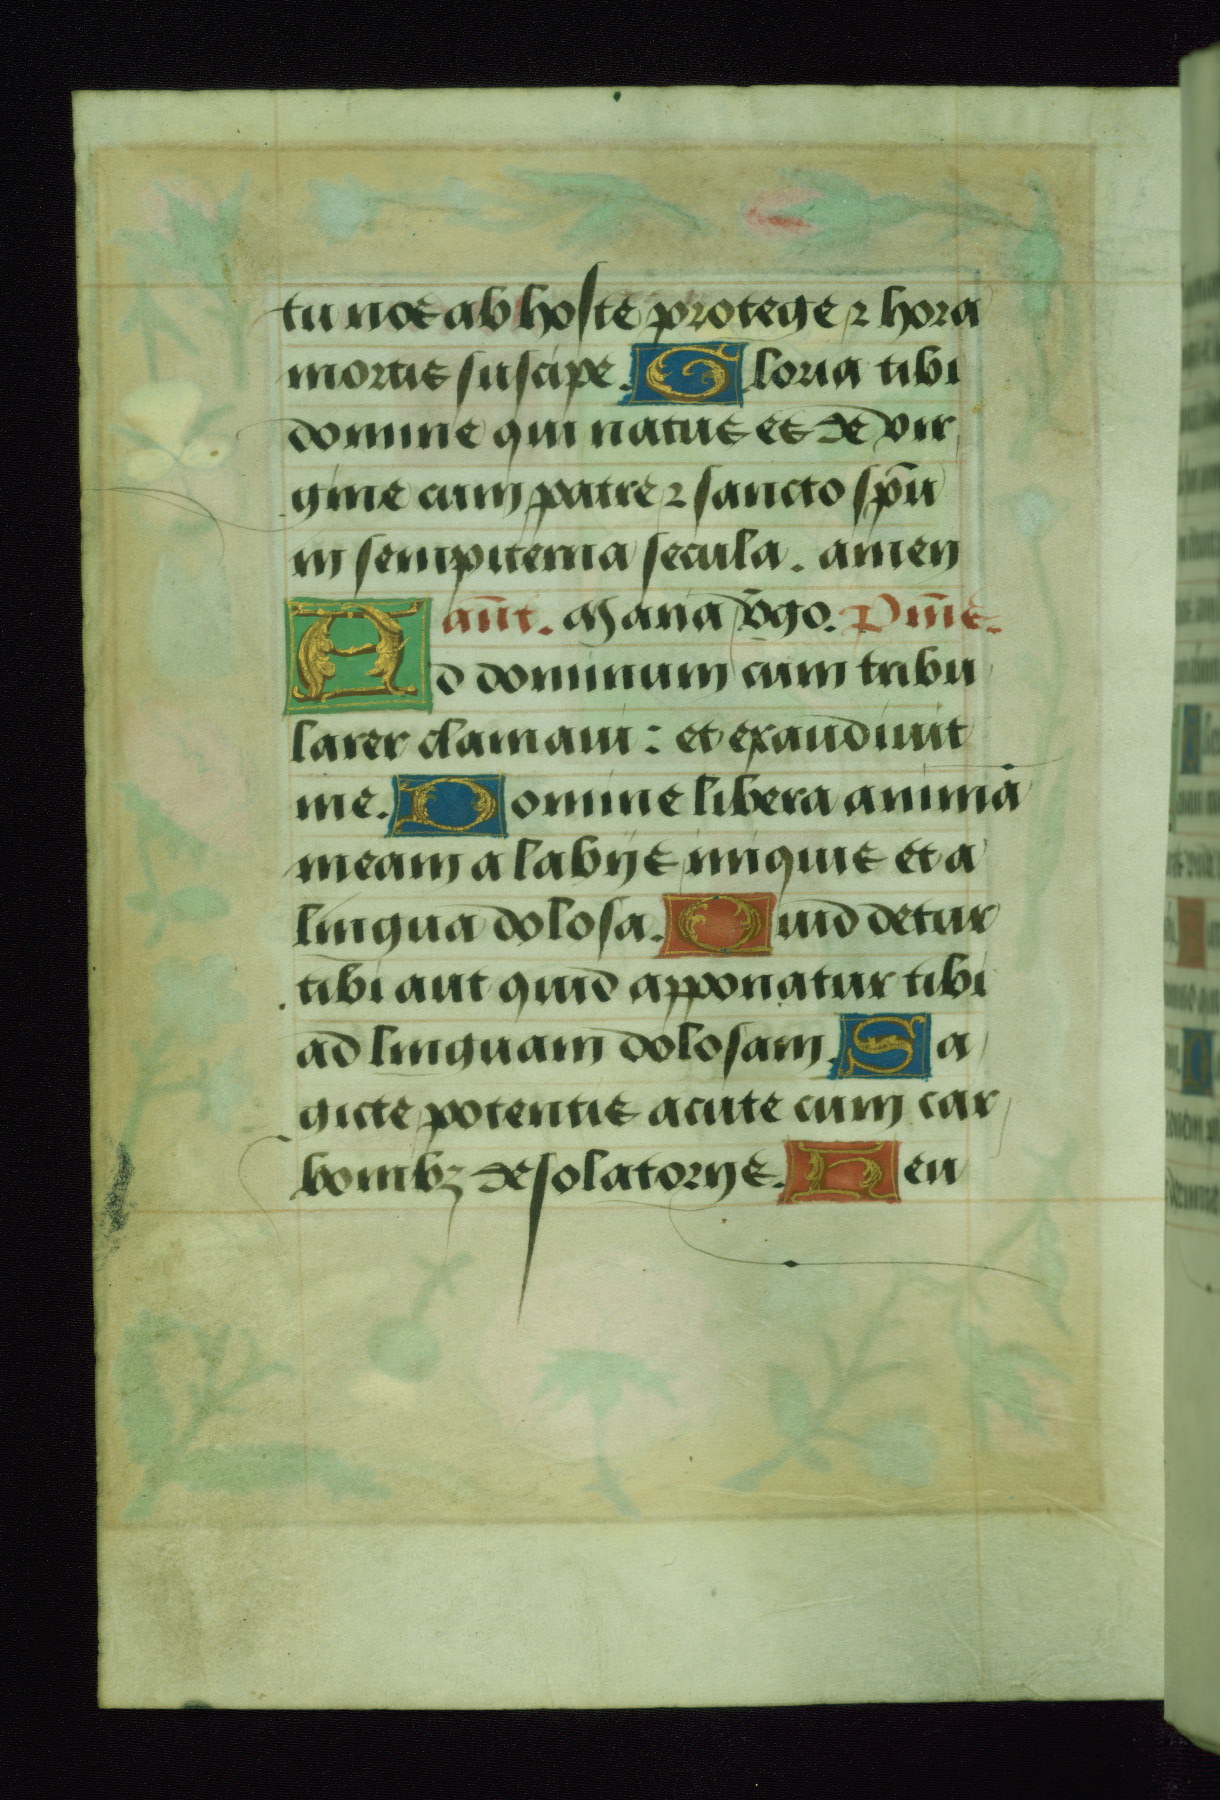 tu nos ab hoste protege ꝛ hora
mortis suscipe. Gloria tibi
domine qui natus es de vir
gine cum patre ꝛ sancto sp̃u
in sempiterna secula. amen
an̄t. Maria v̄go. Psm̄e.
Ad dominum cum tribu
larer clamaui: et exaudiuit
me. Domine libera animā
meam a labijs iniquis et a
lingua dolosa. Quid detur
tibi aut quid apponatur tibi
ad linguam dolosam. Sa
gitte potentis acute cum car
bonibꝫ desolatorijs. Heu